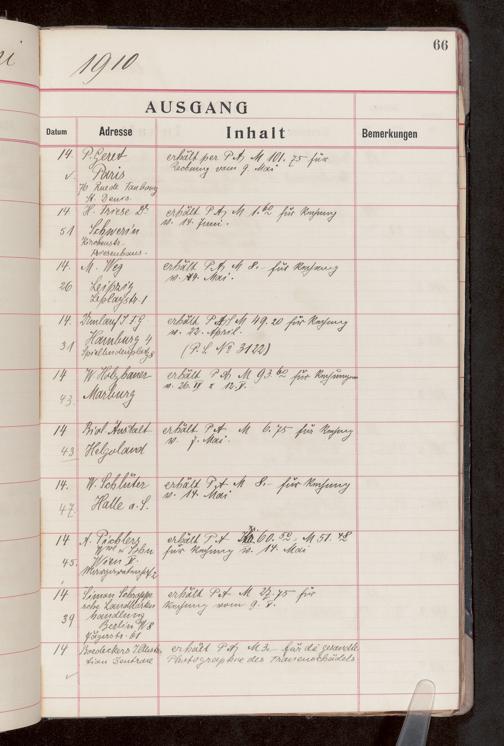 66
1910
AUSGANG
Datum Adresse Inhalt Bemerkungen
14. P. Geret erhält per P.A. M 101.75 für
Paris Rechnung vom 9. Mai
76 Rue de Faubourg
St. Denis.
14 H. Friese Dr. erhält P.A. M 1.60 für Rechnung
51 Schwerin v. 14. Juni.
Kirchenstr.
14. M. Weg erhält P.A. M 8.- für Rechnung
26 Leipzig v. 14. Mai.
Leplaystr. 1
14. Umlauff J.F.G erhält P.A. M 49.20 für Rechnung
31 Hamburg 4 v. 22. April.
Spielbudenplatz 8 (P.S. No 3122)
14 W. Holzhauer erhält P.A. M 93.60 für Rechnungen
43. Marburg v. 26. IV u 12. V.
14 Biol Anstalt erhält P.A. M 6.75 für Rechnung
43 Helgoland v. 7. Mai.
14. W. Schlüter erhält P.A. M 8.- für Rechnung
47. Halle a. S. v. 14. Mai
14 A. Pichlers erhält P.A. Kr. 60.50, M 51.48
Wwe u. Sohn für Rechnung v. 14. Mai
45. Wien V.
Margaretenpl. 2
14 Simon Schropp erhält P.A. M 27.75 für
sche Landkarten Rechnung vom 9. V.
handlung
39 Berlin W8
Jägerstr. 61
14 Boedeckers Illustra erhält P.A. M 3.- für die gesandte
tion Centrale Photographie des Frauenschädels